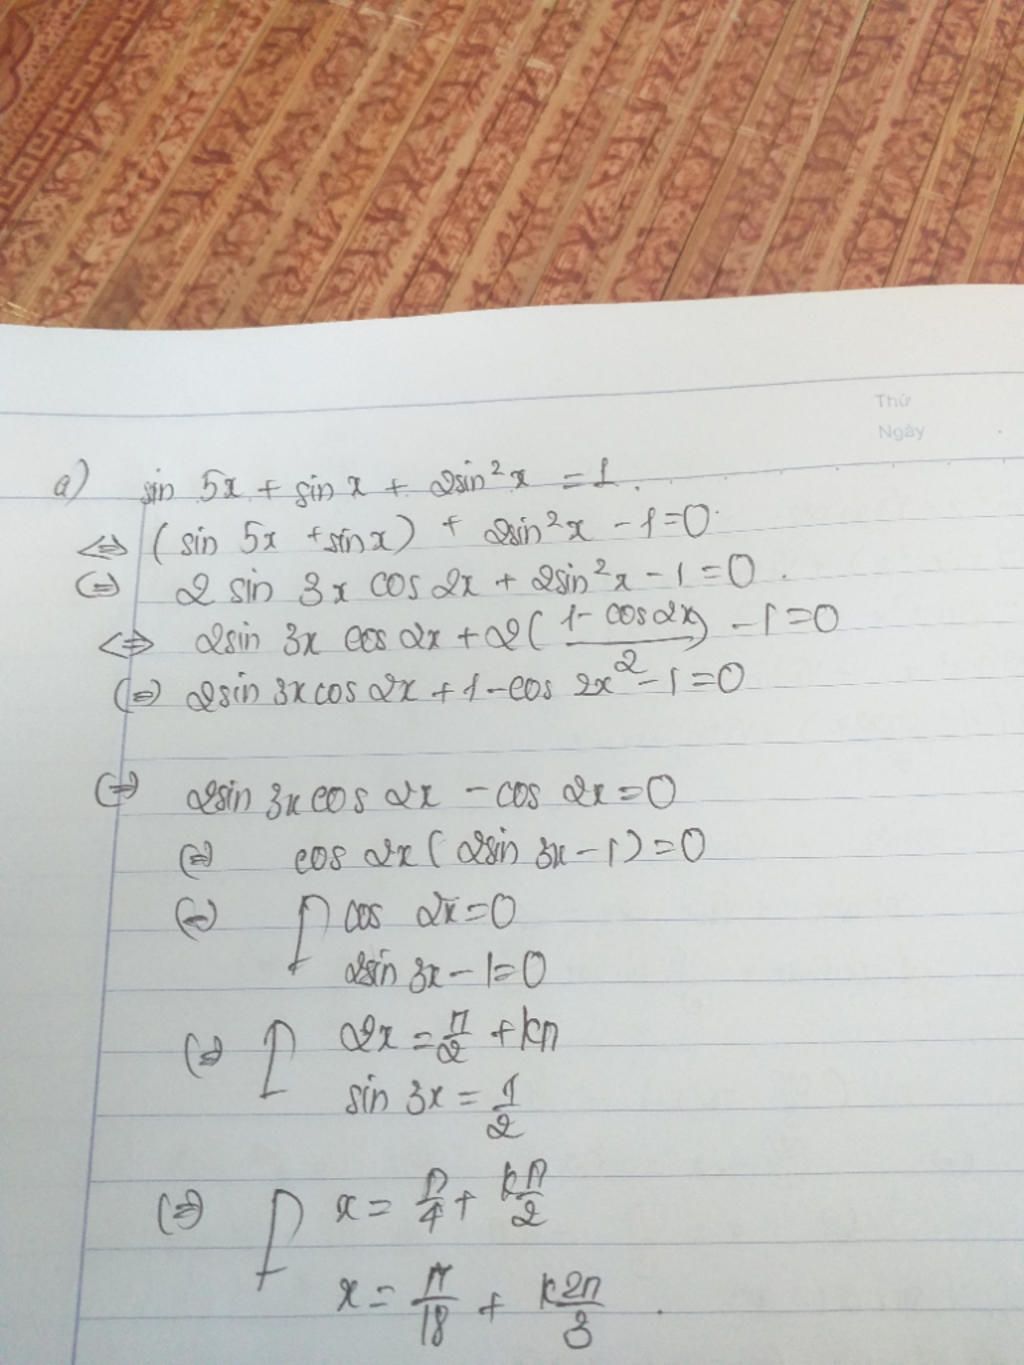 Thứ
Ngày
a) sin 5x + sin x + 2sin²x = 1.
⇔ (sin 5x + sin x) + 2sin²x - 1 = 0
⇔ 2 sin 3x cos 2x + 2sin²x - 1 = 0.
⇔ 2sin 3x cos 2x + 2(1 - cos 2x)/2 - 1 = 0
⇔ 2sin 3x cos 2x + 1 - cos 2x - 1 = 0
⇔ 2sin 3x cos 2x - cos 2x = 0
⇔ cos 2x (2sin 3x - 1) = 0
⇔ [ cos 2x = 0
2sin 3x - 1 = 0
⇔ [ 2x = π/2 + kπ
sin 3x = 1/2
⇔ [ x = π/4 + kπ/2
x = π/18 + k2π/3.